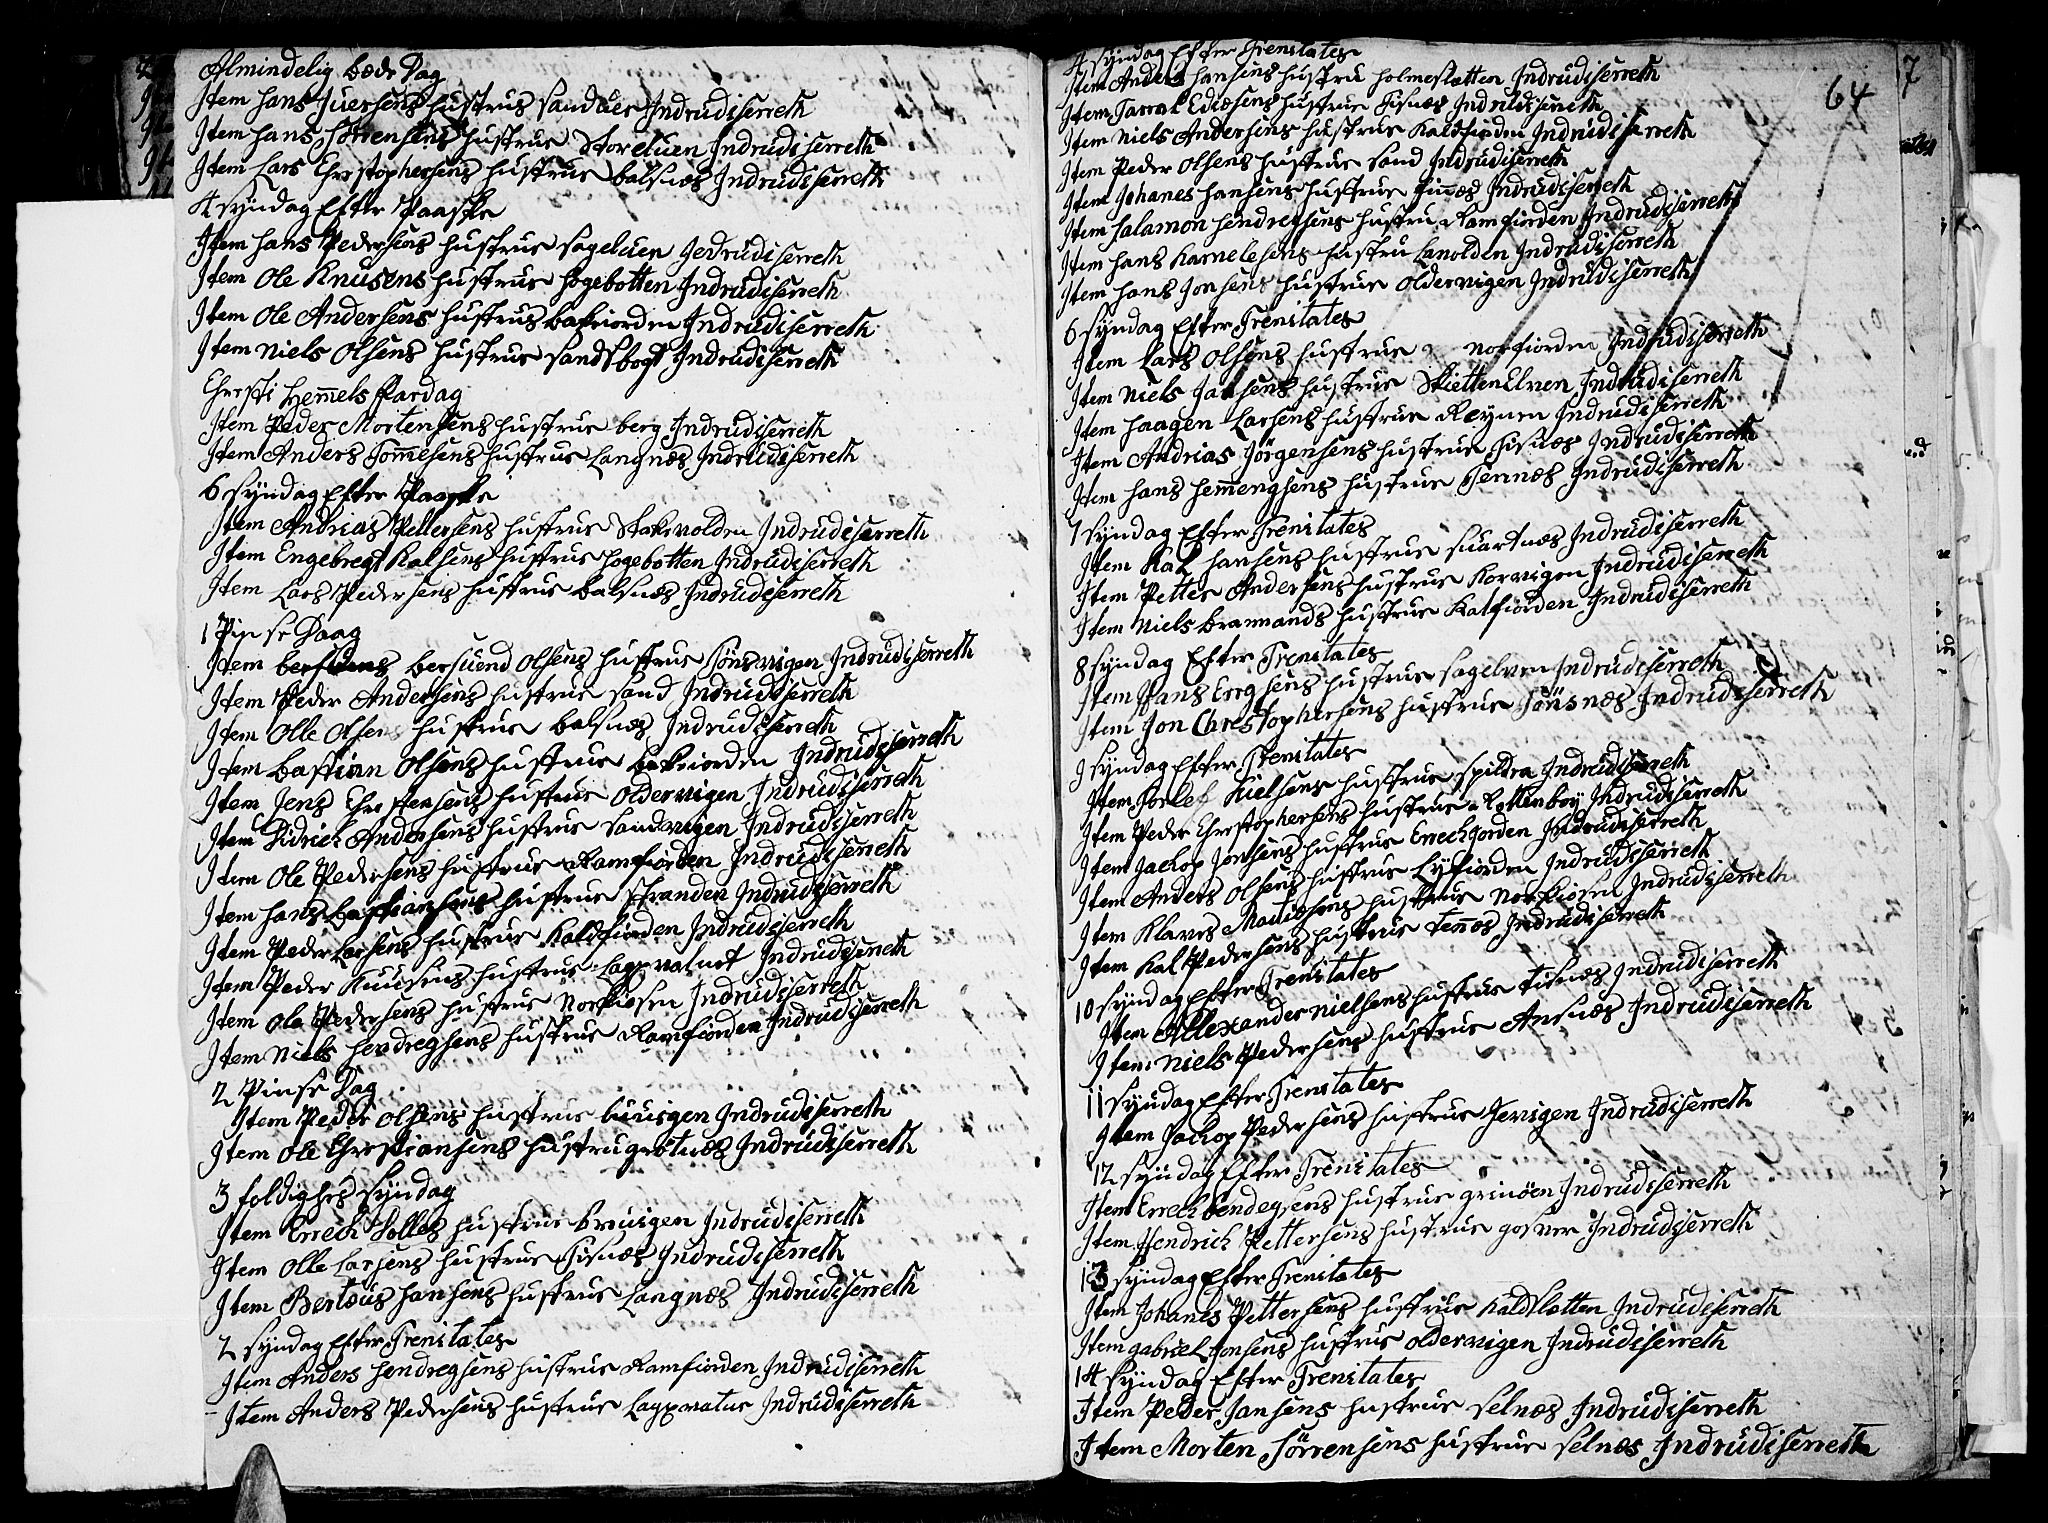 Almindelig bede Dag
Item hans Juersens hustrus sanduer Indrudiserreth
Item hans Sörrensens hustrue Storeluen Indrudiserreth
Item Lars Chrestophersens hustrue balsnæs Indrudiserreth
4 syndag Efter Paaske
Item hans Pedersens hustrue sageluen Jedrudiserreth
Item Ole Knusens hustrue hogebotten Indrudiserreth
Item Ole Andersens hustrus bakfiorden Indrudiserreth
Item Niels Olsens hustrue sandsbogt Indrudiserreth
Chrsti Hemmels ffardag
Item Peder Mortensens hustrue berg Indrudiserreth
Item Anders Tommesens hustrus Langnæs Indrudiserreth
6 syndag Efter Paaske
Item Andrias Pettersens hustrue Stakevolden Indrudiserreth
Item Engebregt Kalsens hustrus hogebotten Indrudiserreth
Item Lars Pedersens hustrue balsnæs Indrudiserreth
1 Pinse Daag
Item bersuend Olsens hustrue Tönsvigen Indrudiserreth
Item Peder Andersens hustrue sand Indrudiserreth
Item Olle Olsens hustrue balsnæs Indrudiserreth
Item bastian Olsens hustrue bakfiorden Indrudiserreth
Item Jens Chrestensens hustrue oldervigen Indrudiserreth
Item Didrich Andersens hustrue sandvigen Indrudiserreth
Item Ole Pedersens hustrue Ramfiorden Indrudiserreth
Item hans bastiansens hustrue stranden Indrudiserreth
Item Peder Larsens hustrue Kaldfiorden Indrudiserreth
Item Peder Knusens hustrue Lagpvatnet Indrudiserreth
Item Ole Pedersens hustrue Norkiosen Indrudiserreth
Item Niels hendregsens hustrue Ramfiorden Indrudiserreth
2 Pinse Dag
Item Peder Olsens hustrue Indrudiserreth
Item Ole Chrestiansens hustru grötnæs Indrudiserreth
3 foldighes syndag
Item Errech Holles hustrue Breuigen Indrudiserreth
Item Olle Larsens hustrue Tisnæs Indrudiserreth
Item Bertæus hansens hustrue Langnæs Indrudiserreth
2 syndag Efter Trenitates
Item Anders hendregsens hustrue Ramfiorden Indrudiserreth
Item Anders Pedersens hustrue Lagpvatne Indrudiserreth
64
7
4 syndag Efter Trenitates
Item Anders hansens hustru holmeslætten Indrudiserreth
Item Tarral hustrue Tisnæs Indrudiserreth
Item Niels Andersens hustrue Kaldfiorden Indrudiserreth
Item Peder Olsens hustrue sand Indrudiserreth
Item Johanes hansens hustrue Finnæs Indrudiserreth
Item Salamon hendregsens hustru Ramfiorden Indrudiserreth
Item hans Karnelesens hustru Lanolden Indrudiserreth
Item hans Jonsens hustrue oldervigen Indrudiserreth
6 syndag Efter Trenitates
Item Lars Olsens hustrue norfiorden Indrudiserreth
Item Niels Jansens hustrue SkiettenElven Indrudiserreth
Item haagen Larsens hustrue Reynen Indrudiserreth
Item Andrias Jörgensens hustrue Tisnæs Indrudiserreth
Item hans hemmengsens hustrue Tennæs Indrudiserreth
7 syndag Efter Trenitates
Item Kal hansens hustrue suartnæs Indrudiserreth
Item Petter Andersens hustrue Korvigen Indrudiserreth
Item Niels bramands hustrue Kalfiorden Indrudiserreth
8 syndag Efter Trenitates
Item Hans Eregsens hustrue sagelven Indrudiserreth
Item Jon Chrestophersens hustrue Tönsnæs Indrudiserreth
9 syndag Efter Trenitates
Item Torlef Nielsens hustrue spildra Indrudiserreth
Item Peder Chrestophersens hustrue Rottenboy Indrudiserreth
Item Jachop Jonsens hustrue Errechgorden Indrudiserreth
Item Anders Olsens hustrue Lyfiorden Indrudiserreth
Item Klaves Matisens hustrue Norkiosen Indrudiserreth
Item Kal Pedersens hustrue tennæs Indrudiserreth
10 syndag Efter Trenitates
Item Allexander nielsens hustrue tisnæs Indrudiserreth
Item Niels Pedersens hustrue Ansnæs Indrudiserreth
11 syndag Efter Trenitates
Item Jachop Pedersens hustrue Jevigen Indrudiserreth
12 syndag Efter Trenitates
Item Errech bendegsens hustrue grinöen Indrudiserreth
Item Hendrich Pettersens hustrue gosver Indrudiserreth
13 syndag Efter Trenitates
Item Johanes Pettersens hustrue Kaldsletten Indrudiserreth
Item gabriel Jonsens hustrue oldervigen Indrudiserreth
14 syndag Efter Trenitates
Item Peder Jansens hustrue selnæs Indrudiserreth
Item Morten Sörrensens hustrue selnæs Indrudiserreth